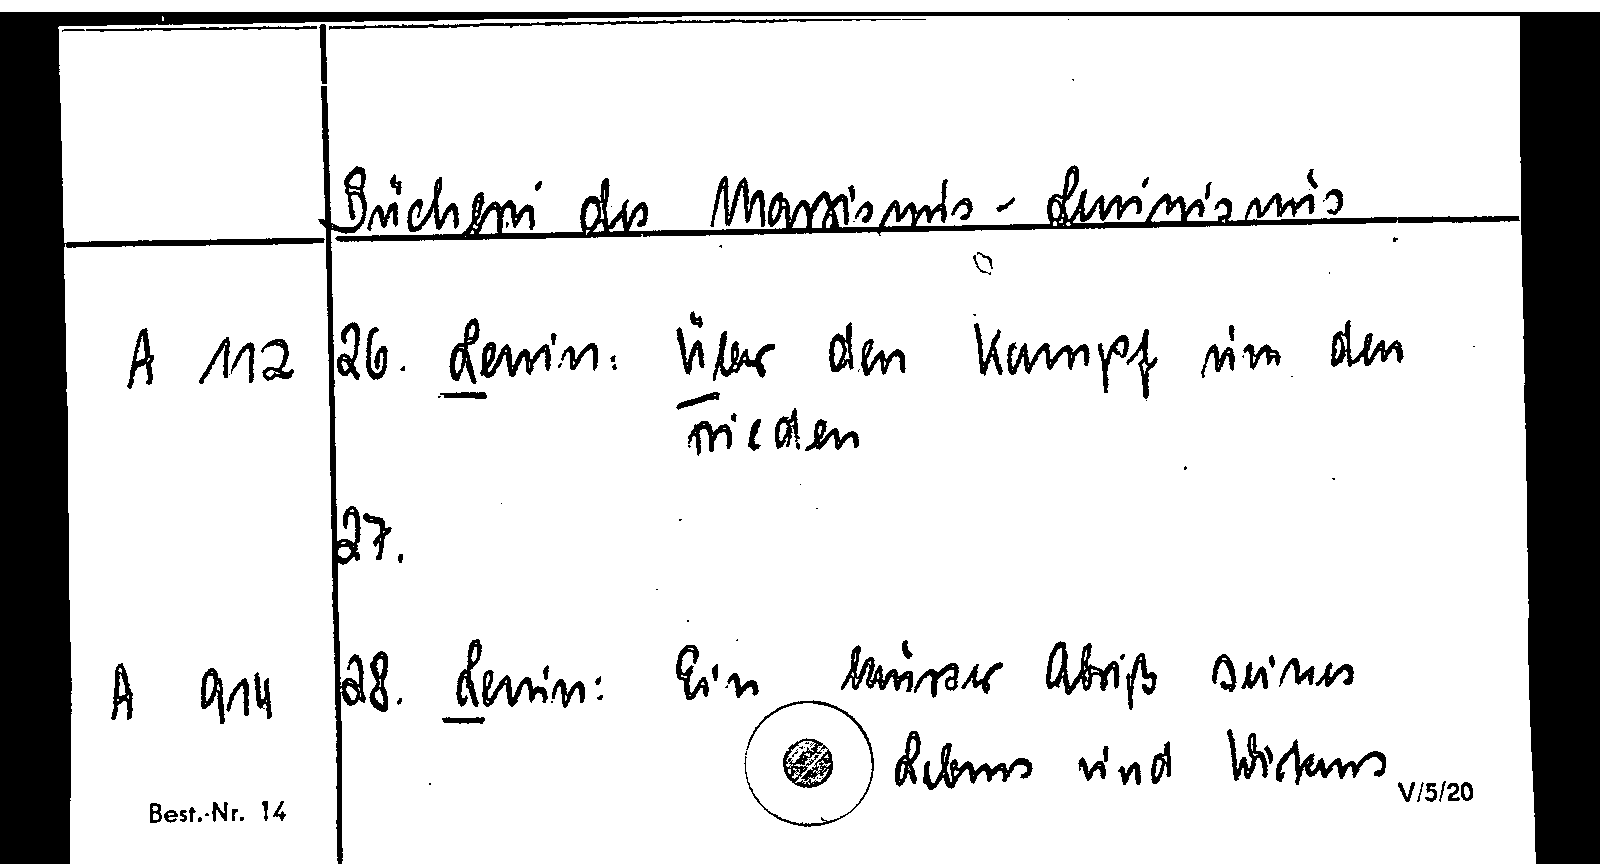 Bücherei des Marxismus-Leninismus
A 112 26. Lenin: Über den Kampf um den
Frieden
27.
A 914 28. Lenin: Ein kurzer Abriß seines
Lebens und Wirkens
Best.-Nr. 14 V/5/20